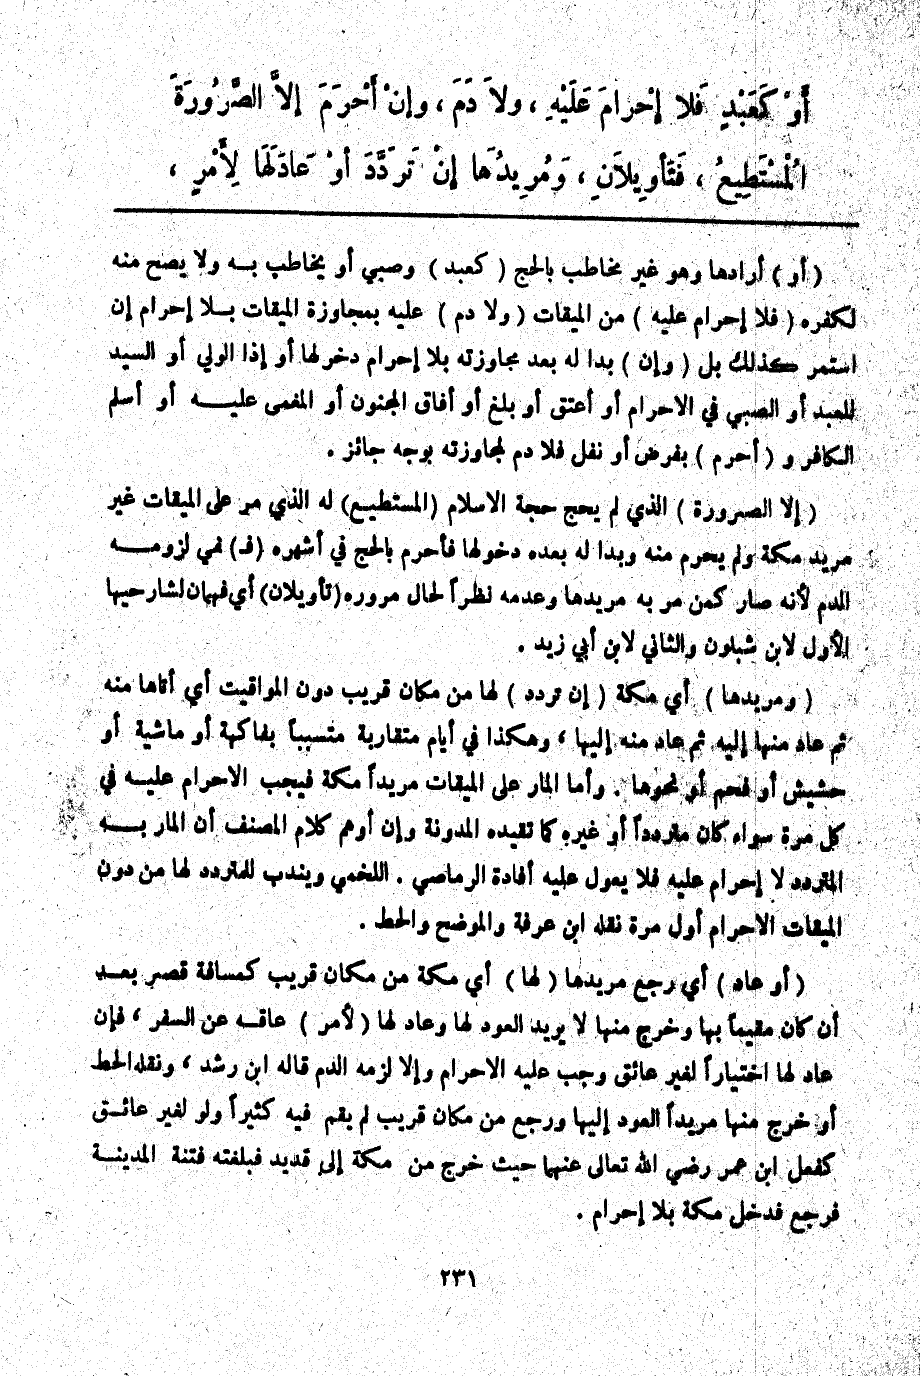 أَوْ كَعَبْدٍ فَلا إِحْرامَ عَلَيْهِ ، ولاَ دَمَ ، وإنْ أَحْرَمَ إلاَّ الصَّرُورَةَ
الْمُسْتَطِيعُ ، فَتَأوِيلاَنِ ، وَمُرِيدُهَا إنْ تَرَدَّدَ أوْ عَادَ لَهَا لِأَمْرٍ ،
( أو ) أرادها وهو غير مخاطب بالحج ( كعبد ) وصبي أو يخاطب بـه ولا يصح منه
لكفره ( فلا إحرام عليه ) من الميقات ( ولا دم ) عليه بمجاوزة الميقات بـلا إحرام إن
استمر كذلك بل ( وإن ) بدا له بعد مجاوزته بلا إحرام دخولها أو إذا الولي أو السيد
للعبد أو الصبي في الاحرام أو أعتق أو بلغ أو أفاق المجنون أو المغمى عليـه أو أسلم
الكافر و ( أحرم ) بفرض أو نفل فلا دم لمجاوزته بوجه جائز .
( إلا الصرورة ) الذي لم يحج حجة الاسلام (المستطيـع) له الذي مر على الميقات غير
مريد مكة ولم يحرم منه وبدا له بعده دخولها فأحرم بالحج في أشهره (فـ) في لزومـه
الدم لأنه صار كمن مر به مريدها وعدمه نظراً لحال مروره (تأويلان) أي فهمان لشارحيها
الأول لابن شبلون والثاني لابن أبي زيد .
( ومريدها ) أي مكة ( إن تردد ) لها من مكان قريب دون المواقيت أي أتاها منه
ثم عاد منها إليه ثم عاد منه إليها ، وهكذا في أيام متقاربة متسبباً بفاكهة أو ماشية أو
حشيش أو فحم أو نحوها . وأما المار على الميقات مريداً مكة فيجب الاحرام عليـه في
كل مرة سواء كان مترددا أو غيره كما تقيده المدونة وإن أوهم كلام المصنف أن المار بـه
المتردد لا إحرام عليه فلا يعول عليه أفادة الرماصي . اللخمي ويندب للمتردد لها من دون
الميقات الاحرام أول مرة نقله ابن عرفة والموضح والحط .
( أو عاد ) أي رجع مريدها ( لها ) أي مكة من مكان قريب كمسافة قصر بعـد
أن كان مقيماً بها وخرج منها لا يريد العود لها وعاد لها ( لأمر ) عاقـه عن السفر ، فإن
عاد لها اختياراً لغير عائق وجب عليه الاحرام وإلا لزمه الدم قاله ابن رشد ، ونقله الحط
أو خرج منها مريداً العود إليها ورجع من مكان قريب لم يقم فيه كثيراً ولو لغير عائـق
كفعل ابن عمر رضي الله تعالى عنهما حيث خرج من مكة إلى قديد فبلغته فتنة المدينـة
فرجع فدخل مكة بلا إحرام .
٢٣١